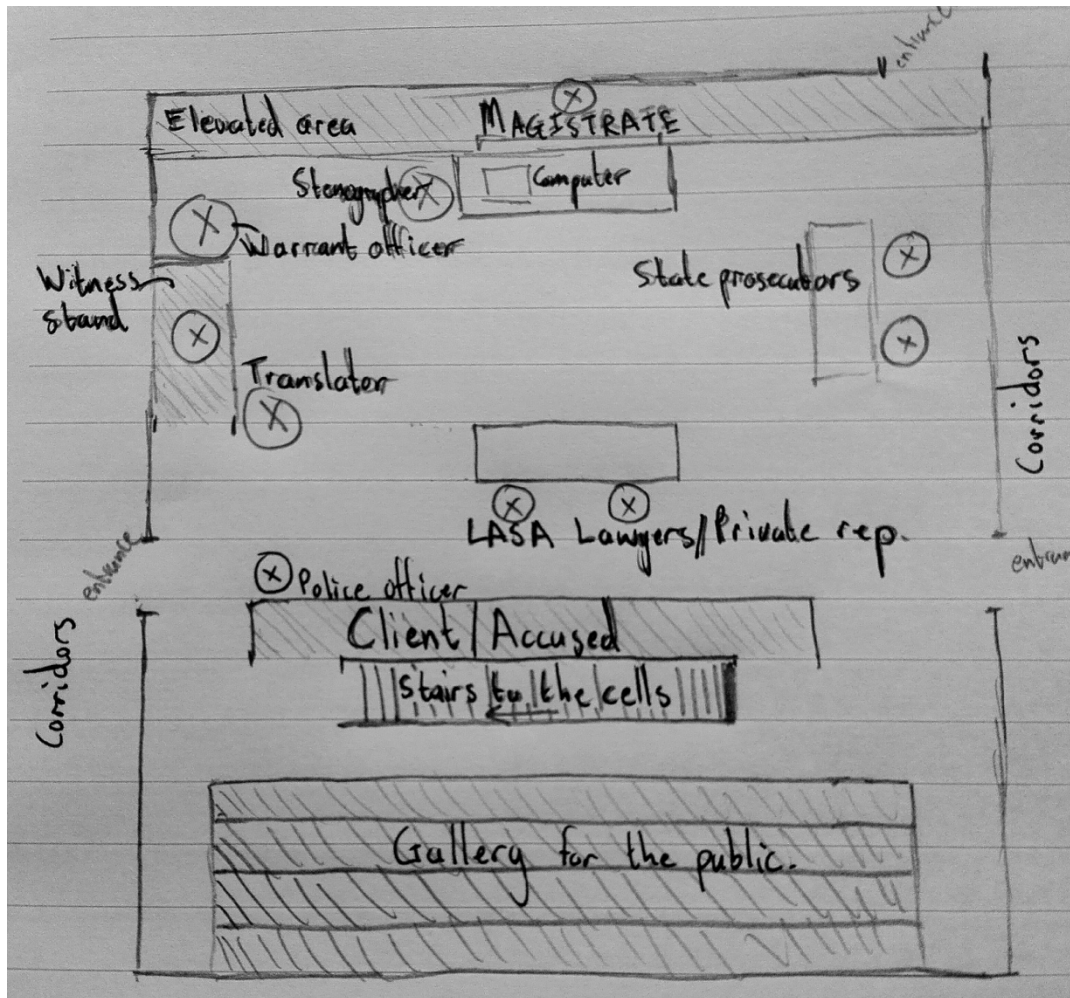 entrance
Elevated area
MAGISTRATE
Stenographer
Computer
Warrant officer
Witness
stand
State prosecutors
Translator
Corridors
LASA Lawyers/Private rep.
entrance
entran
Police officer
Client/Accused
Corridors
Stairs to the cells
Gallery for the public.